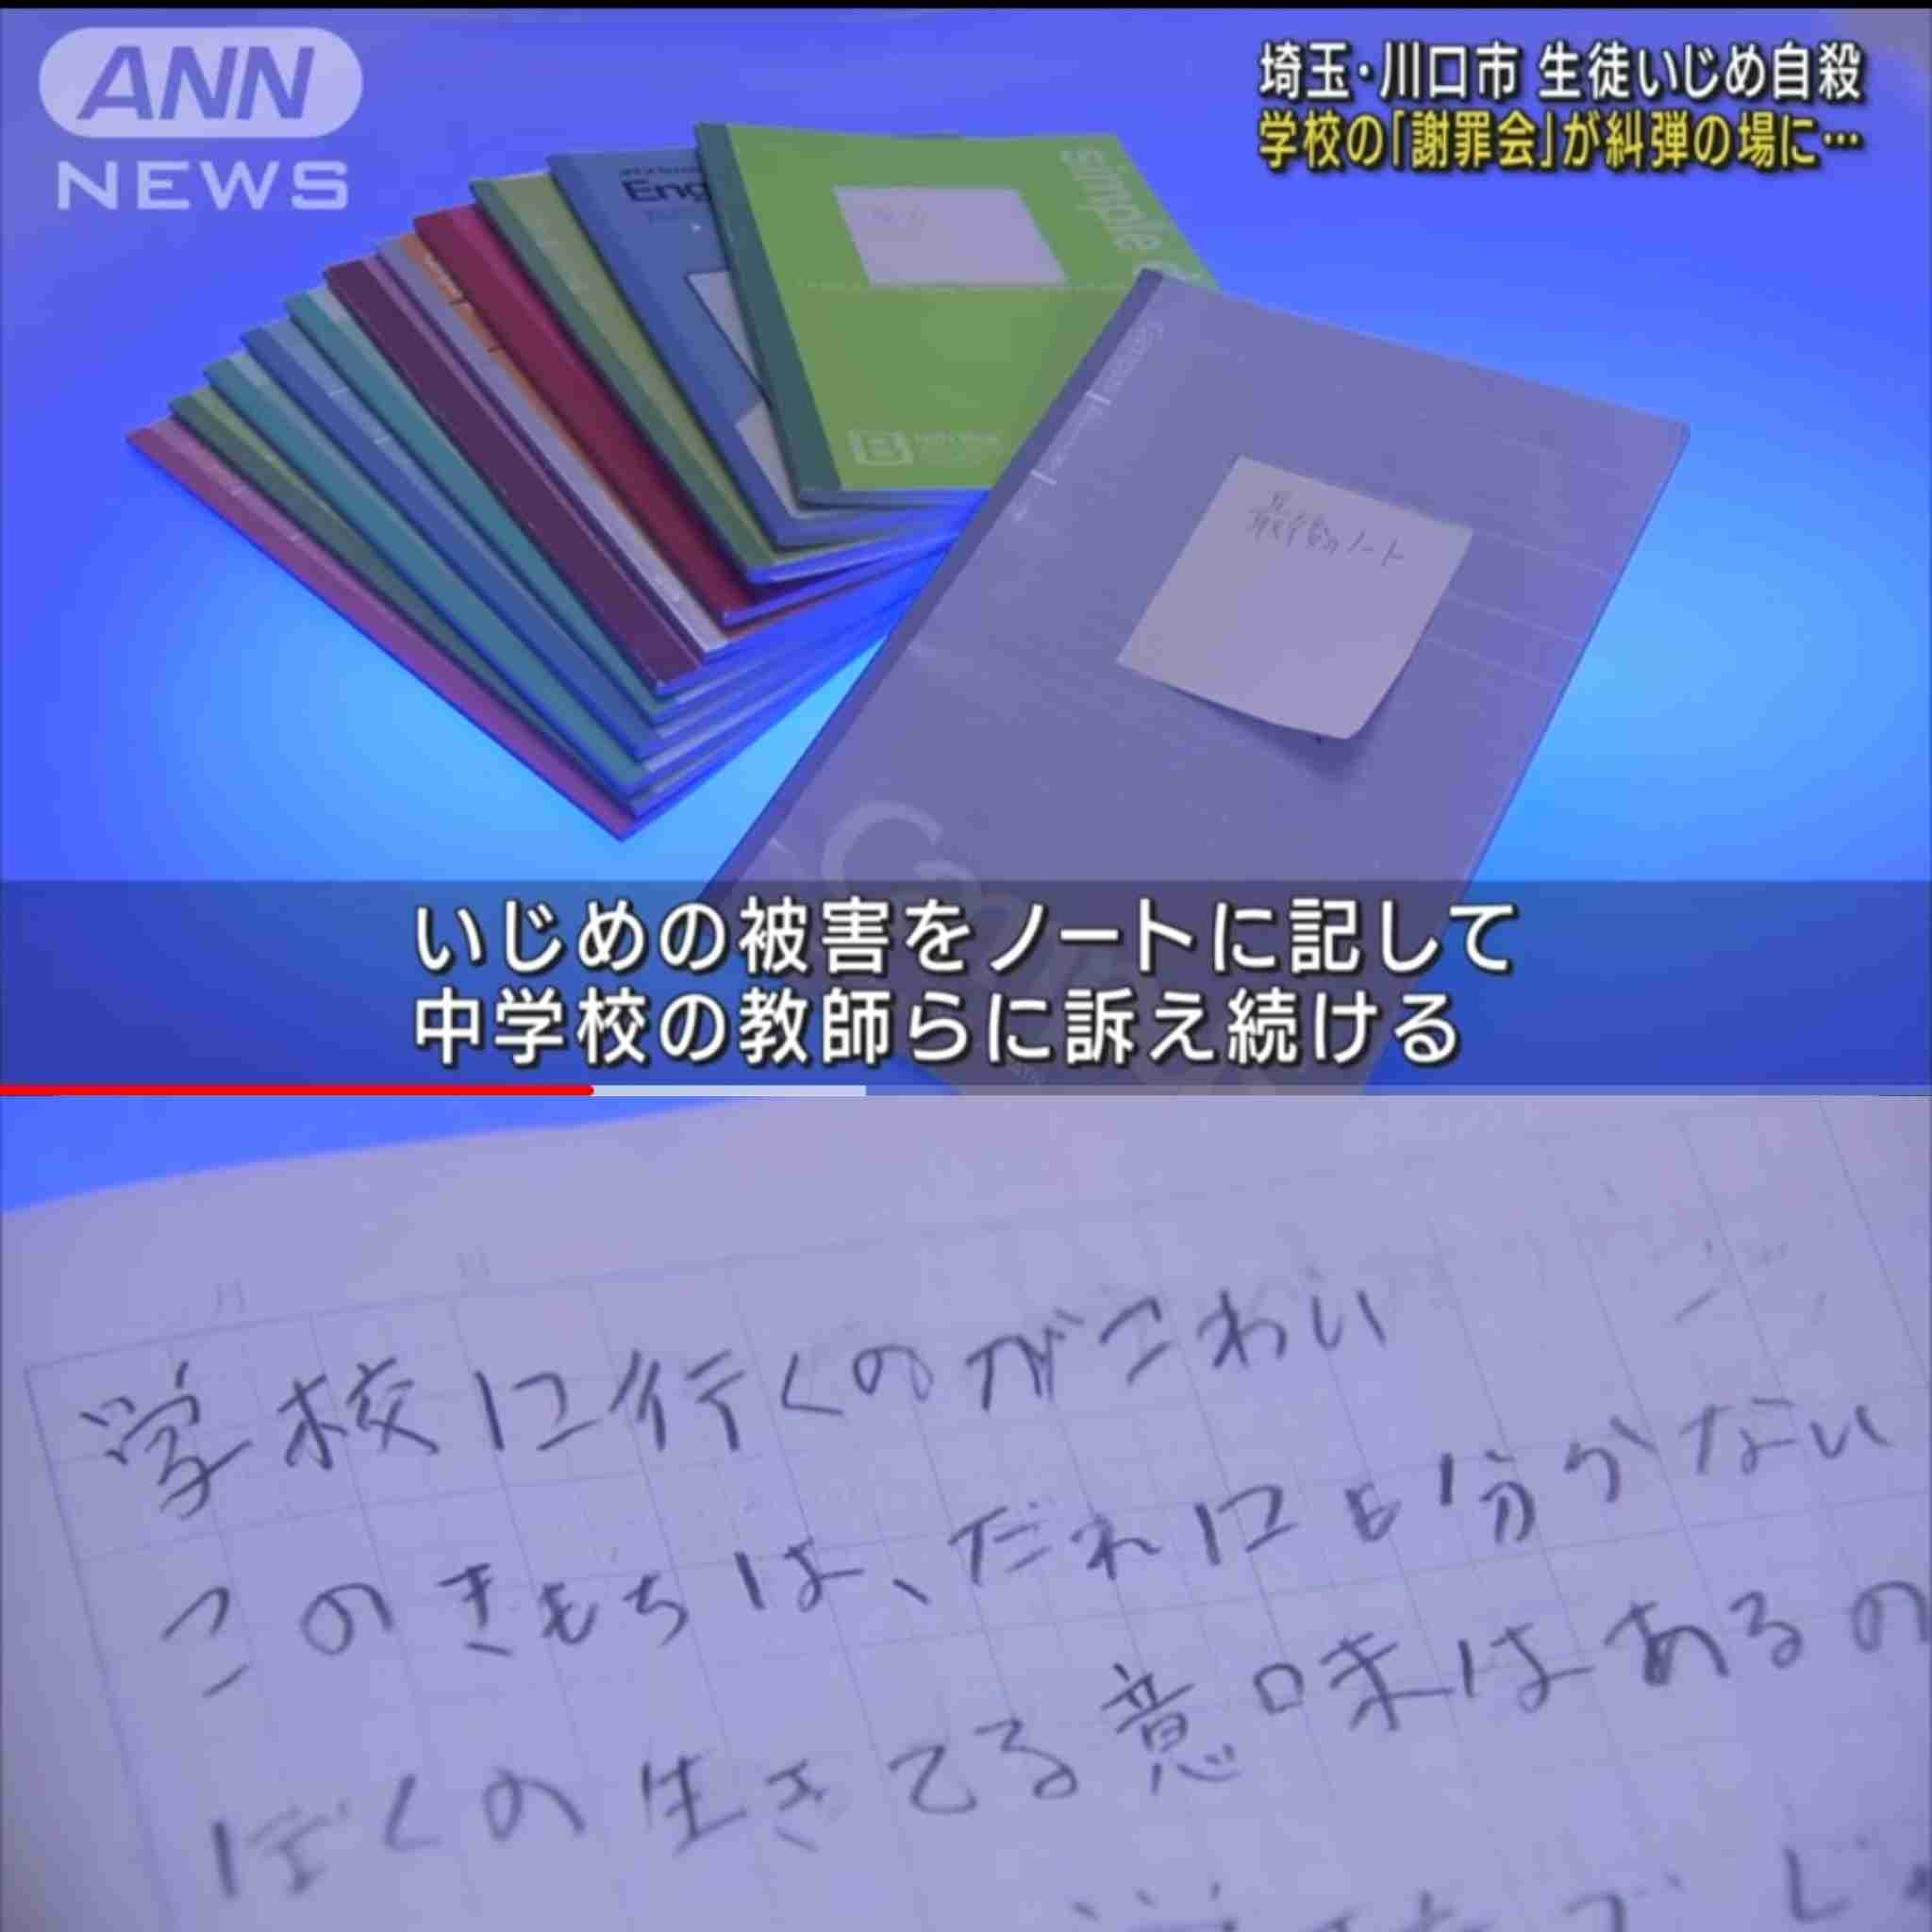 ANN
NEWS
埼玉・川口市 生徒いじめ自殺
学校の「謝罪会」が糾弾の場に…
Eng
simple
B
最後のノート
Cam
いじめの被害をノートに記して
中学校の教師らに訴え続ける
学校に行くのがこわい
このきもちは、だれにも分かない
ぼくの生きてる意味はあるの